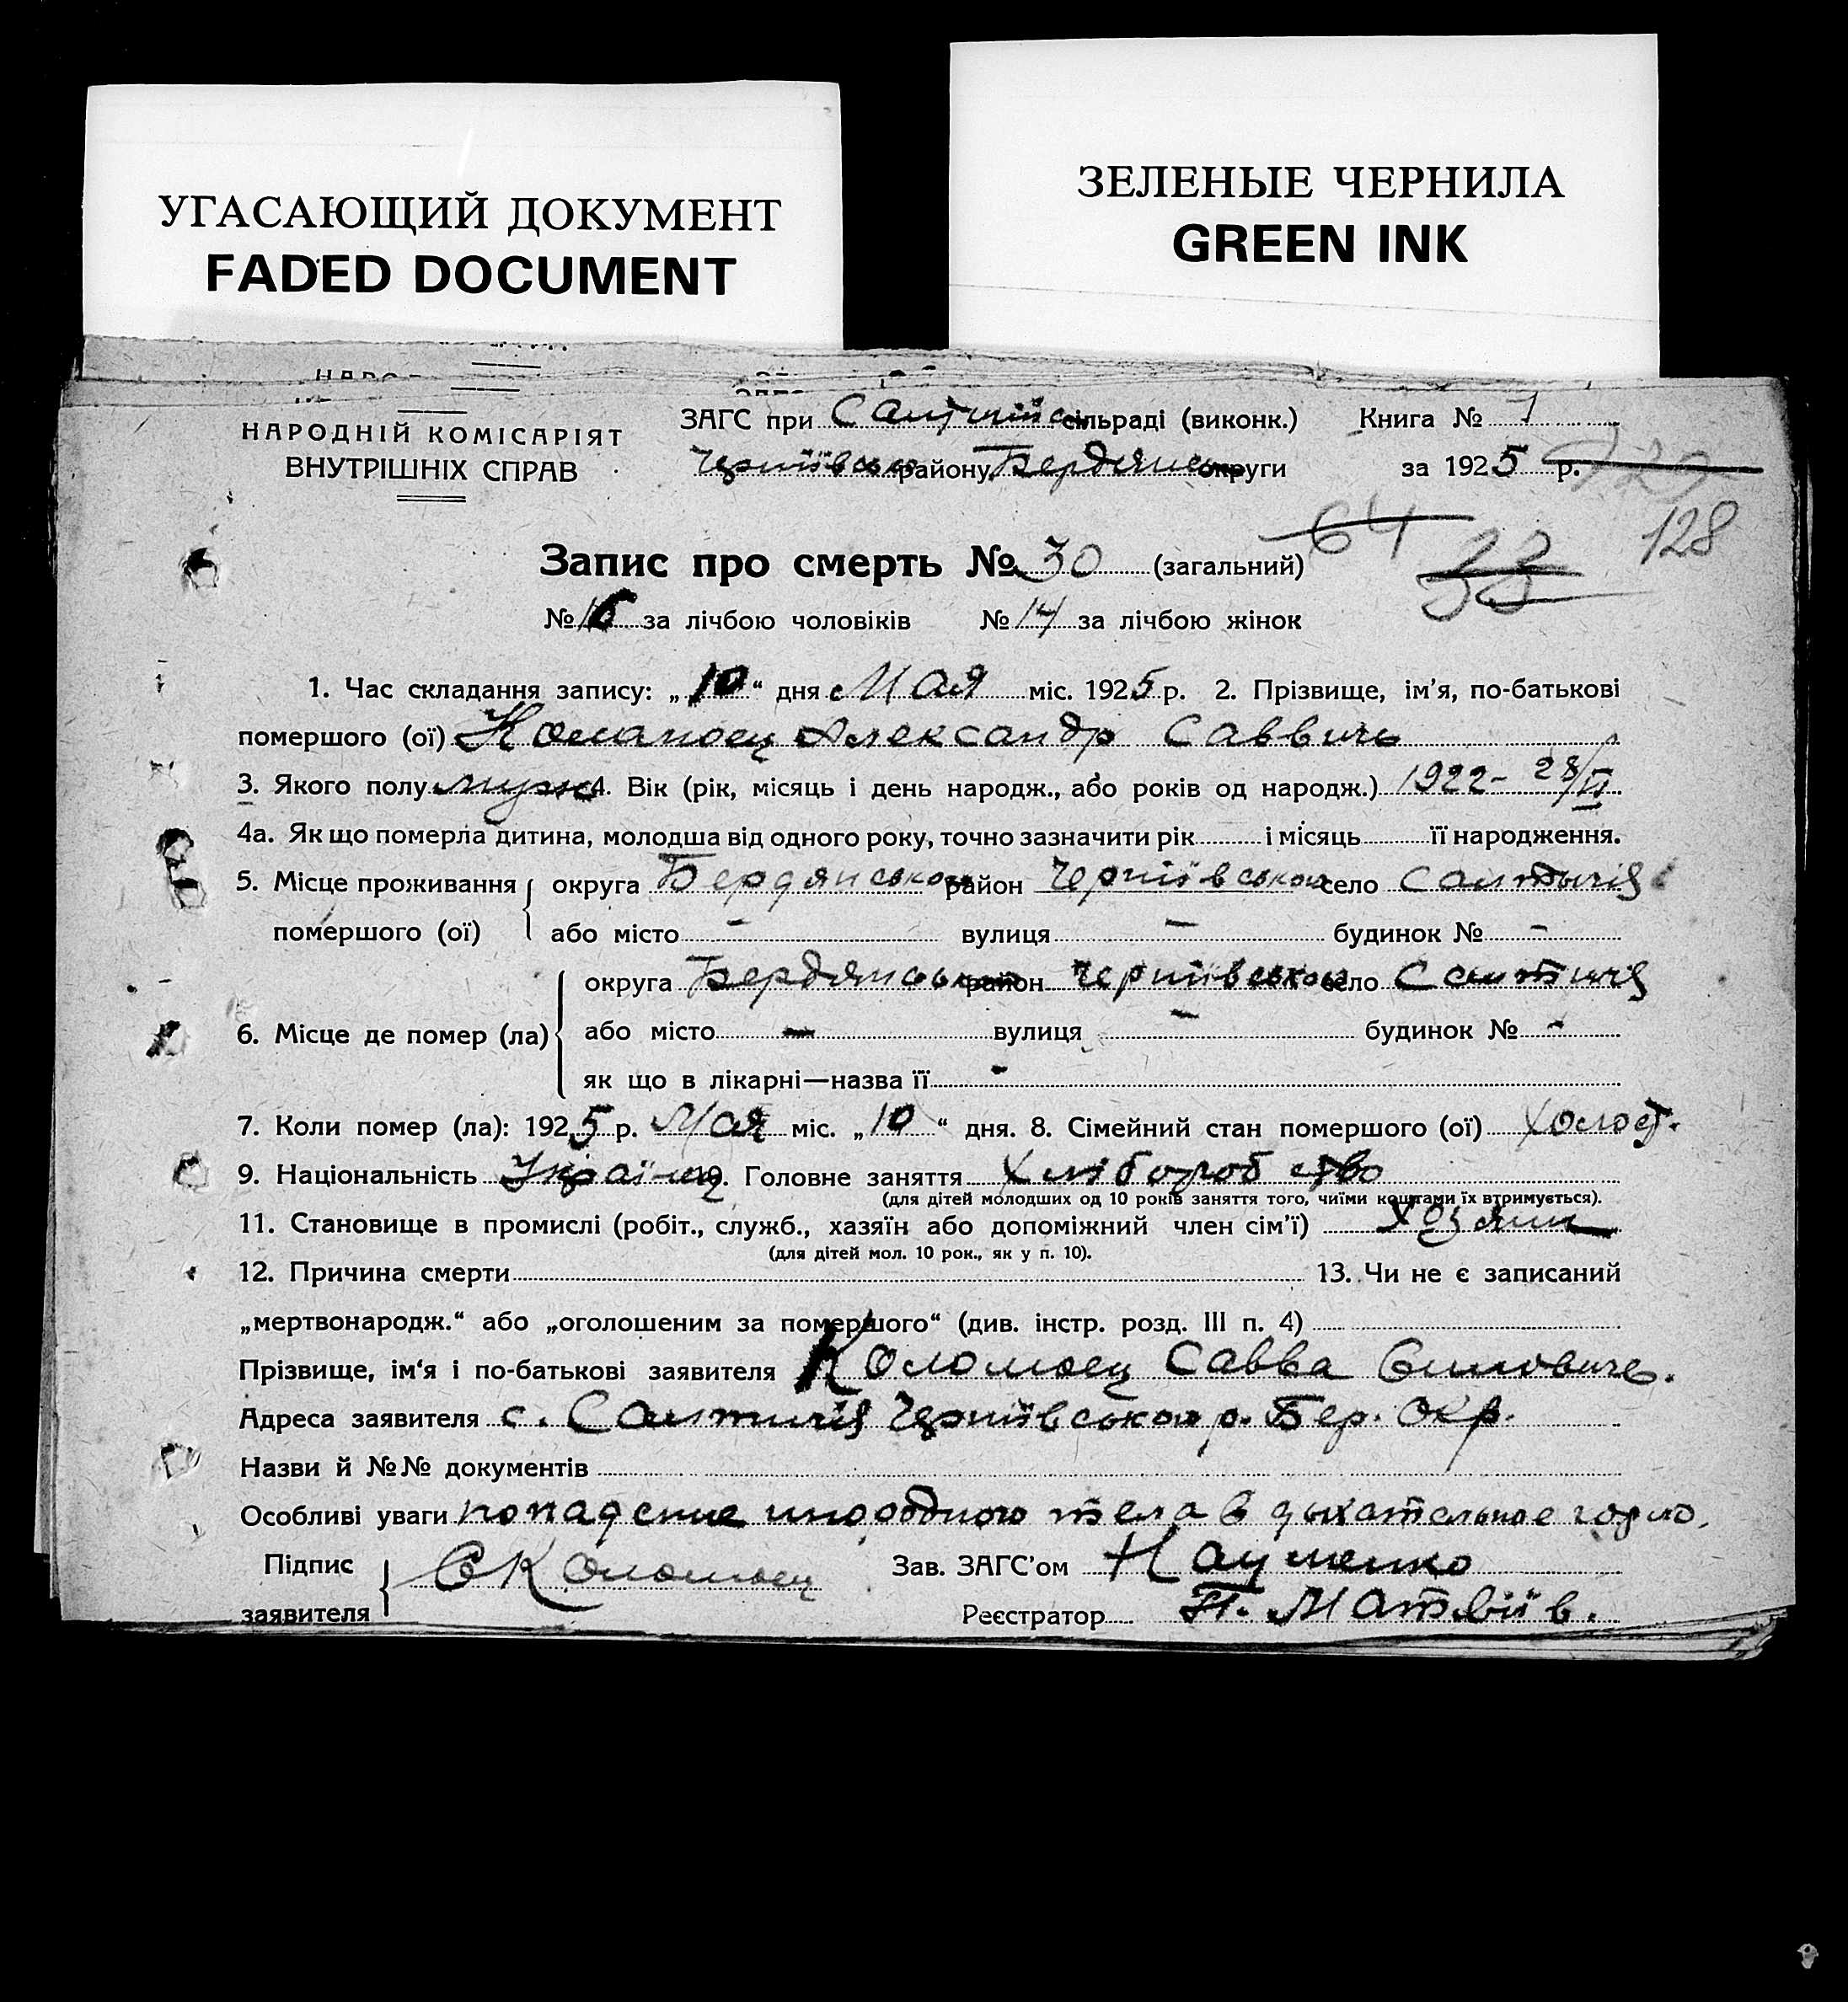 УГАСАЮЩИЙ ДОКУМЕНТ
FADED DOCUMENT
ЗЕЛЕНЫЕ ЧЕРНИЛА
GREEN INK
НАРОДНІЙ КОМІСАРІЯТ
ВНУТРІШНІХ СПРАВ
ЗАГС при сільраді (виконк.) Книга № 1
району Бердянсь округи за 1925 р.
64 128
Запис про смерть № 30 (загальний)
№ 16 за лічбою чоловіків № 14 за лічбою жінок
1. Час складання запису: „10“ дня Мая міс. 1925 р. 2. Прізвище, ім'я, по-батькові
помершого (ої) Коломоец Александр Саввичь
3. Якого полу муж 4. Вік (рік, місяць і день народж., або років од народж.) 1922 - 28/
4а. Як що померла дитина, молодша від одного року, точно зазначити рік і місяць її народження.
5. Місце проживання округа Бердянськои район Черніівськои село Салтичія
помершого (ої) або місто - вулиця - будинок № -
округа Бердянськои район Черніівськои село Салтичія
6. Місце де помер (ла) або місто - вулиця - будинок № -
як що в лікарні—назва її -
7. Коли помер (ла): 1925 р. Мая міс. „10“ дня. 8. Сімейний стан помершого (ої) холост.
9. Національність Українец 10. Головне заняття Хліборобство
(для дітей молодших од 10 років заняття того, чиїми коштами їх втримується).
11. Становище в промислі (робіт., служб., хазяїн або допоміжний член сім'ї) Хозяин
(для дітей мол. 10 рок., як у п. 10).
12. Причина смерти 13. Чи не є записаний
„мертвонародж.“ або „оголошеним за помершого“ (див. інстр. розд. III п. 4)
Прізвище, ім'я і по-батькові заявителя Коломоец Савва
Адреса заявителя с. Салтичія Черніівськои р. Бер. Окр.
Назви й №№ документів
Особливі уваги попадение инородного тела в дыхательное горло.
Підпис СКоломоец Зав. ЗАГС'ом Науменко
заявителя Реєстратор П. Матвіїв.